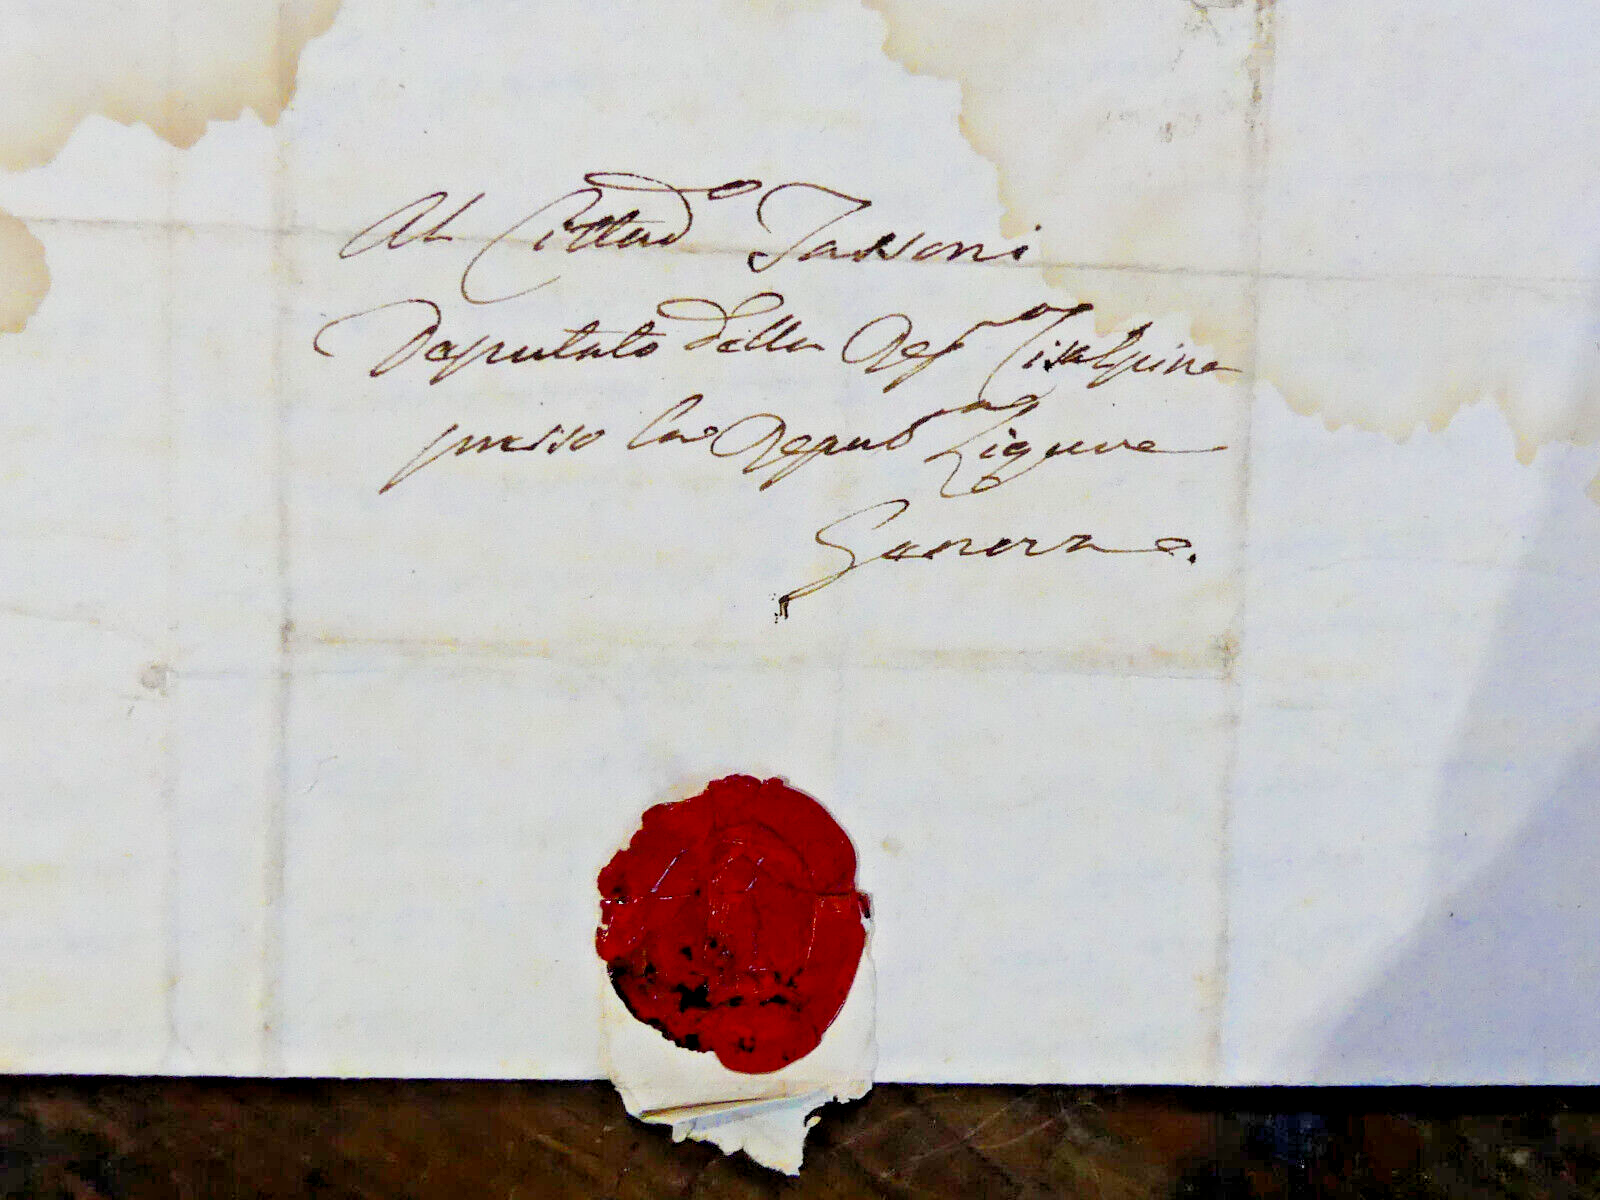 Al Cittad.o Tassoni
Deputato della Rep.ca Cisalpina
presso la Repub.ca Ligure
Genova.